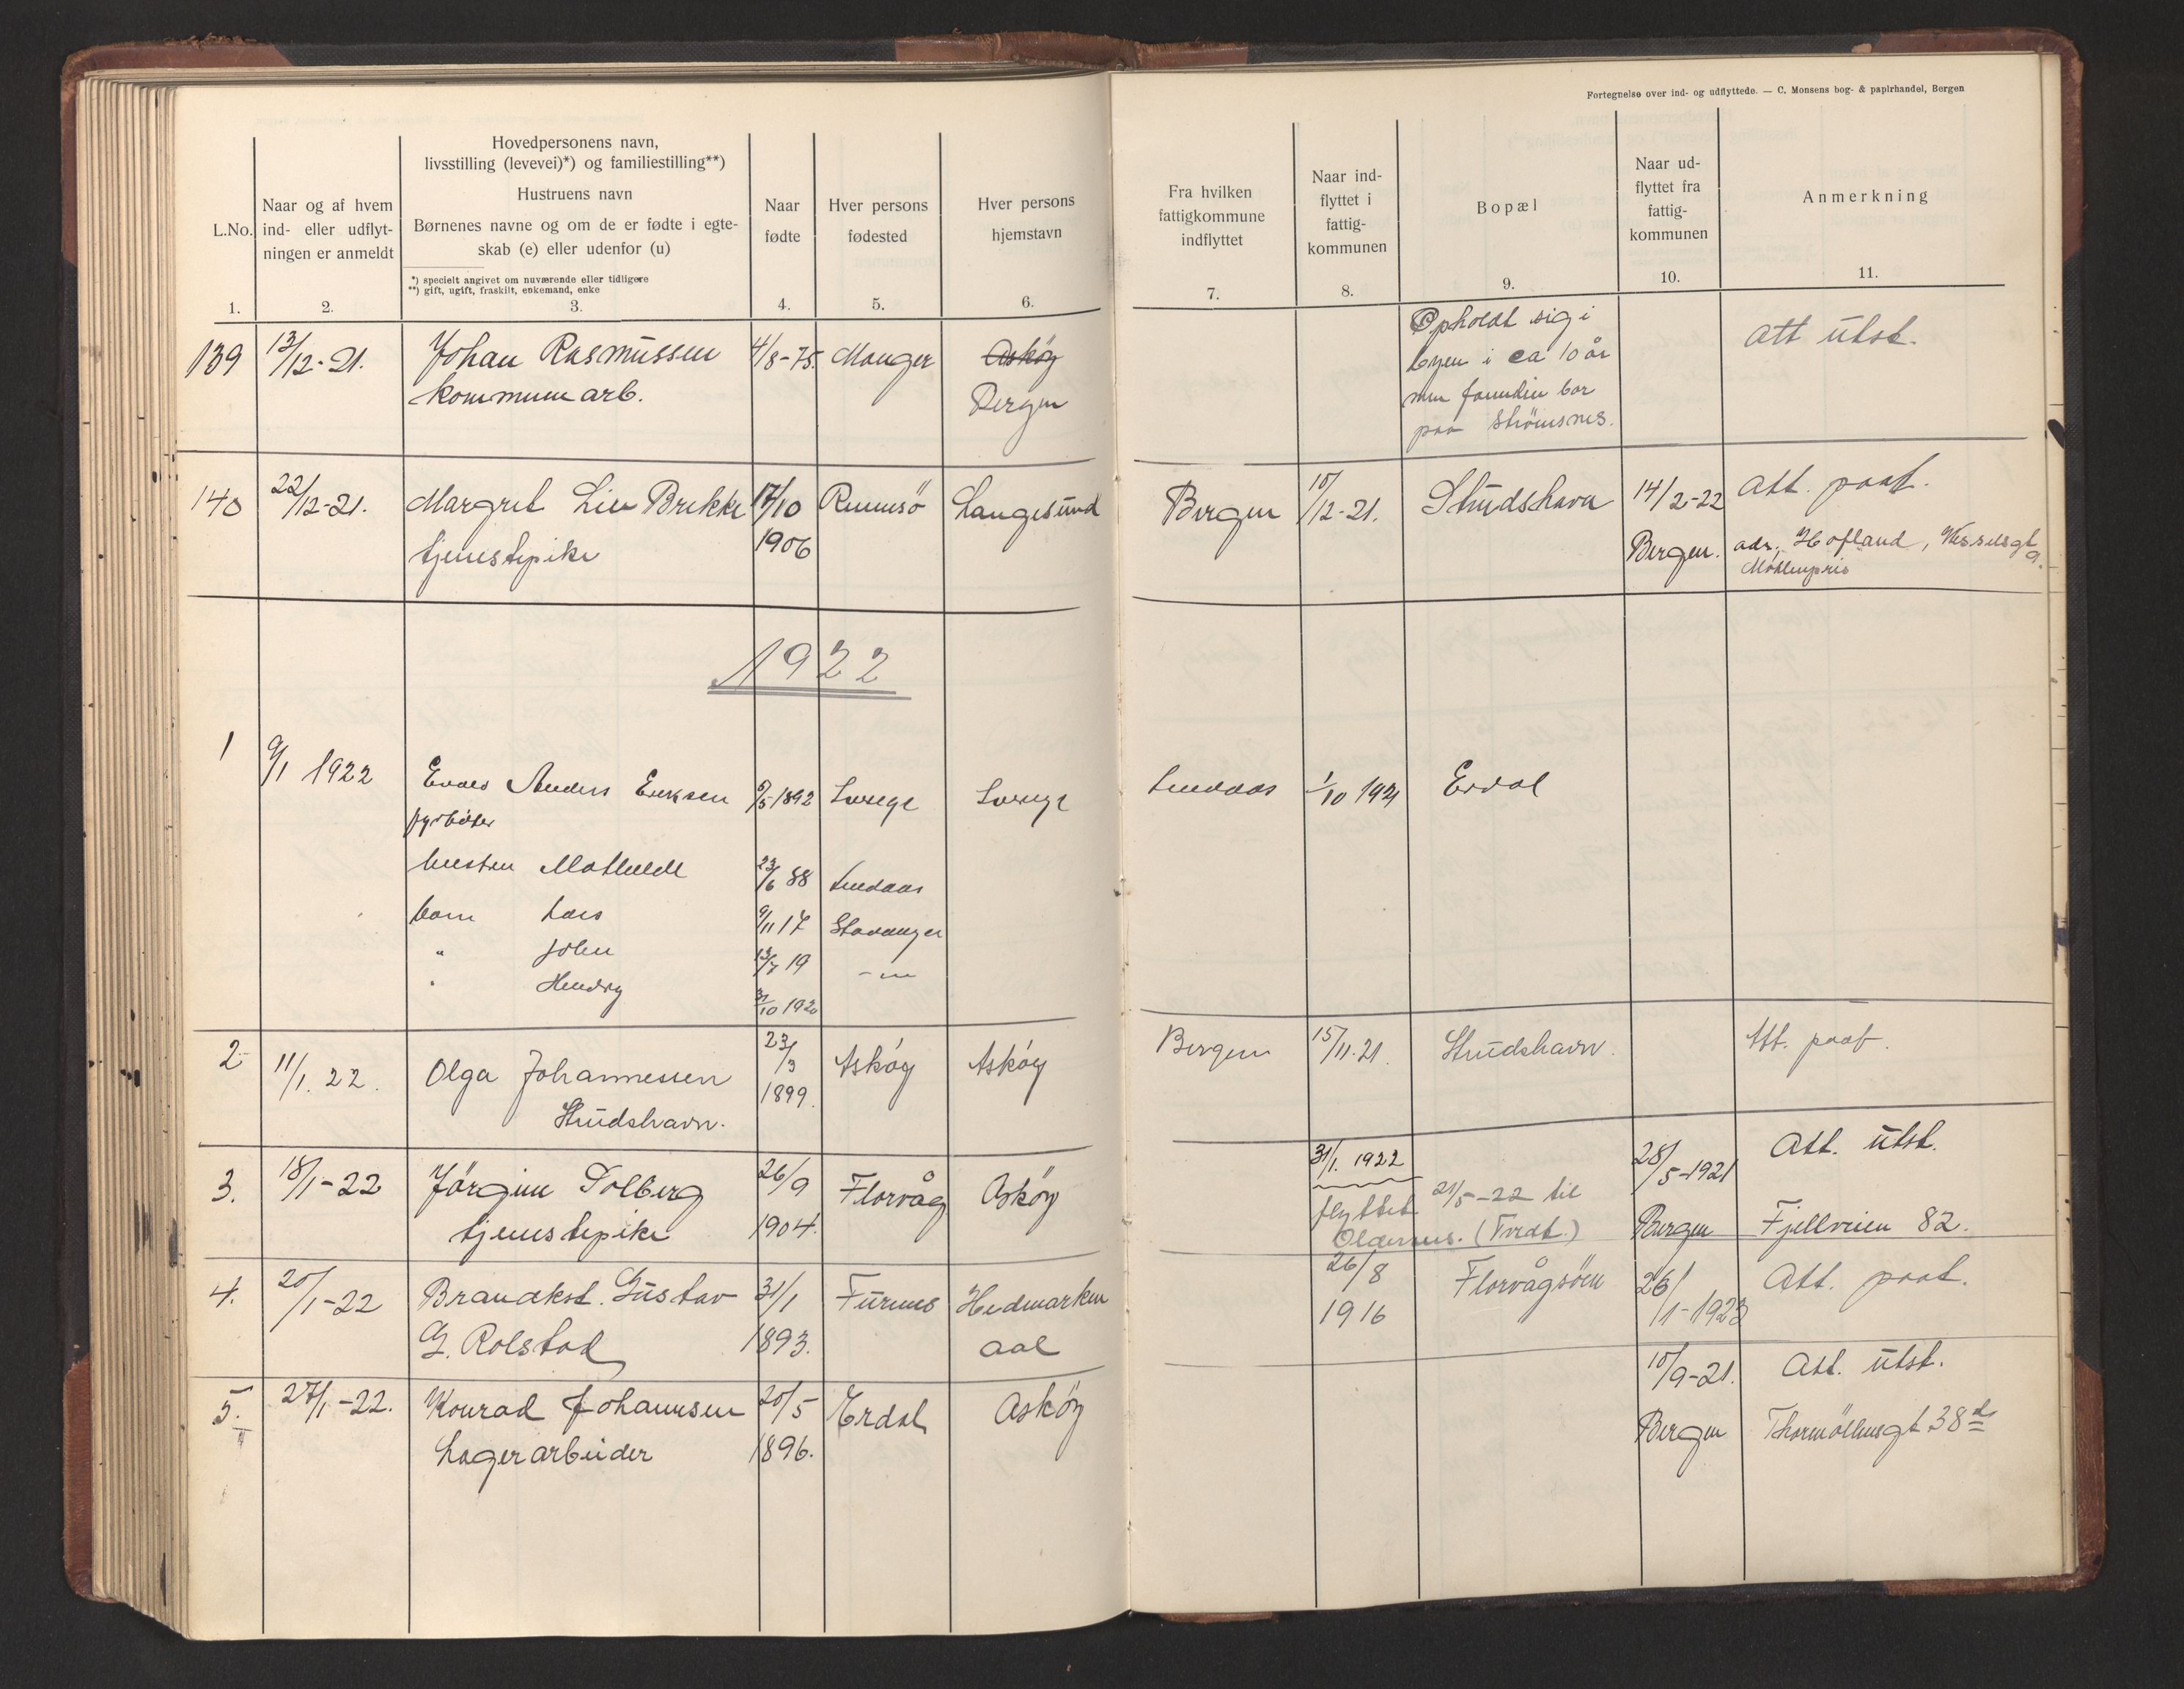 Fortegnelse over ind- og udflyttede. — C. Monsens bog- & papirhandel, Bergen
L.No.
1.
Naar og af hvem
ind- eller udflyt-
ningen er anmeldt
2.
Hovedpersonens navn,
livsstilling (levevei)*) og familiestilling**)
Hustruens navn
Børnenes navne og om de er fødte i egte-
skab (e) eller udenfor (u)
*) specielt angivet om nuværende eller tidligere
**) gift, ugift, fraskilt, enkemand, enke
3.
Naar
fødte
4.
Hver persons
fødested
5.
Hver persons
hjemstavn
6.
Fra hvilken
fattigkommune
indflyttet
7.
Naar ind-
flyttet i
fattig-
kommunen
8.
Bopæl
9.
Naar ud-
flyttet fra
fattig-
kommunen
10.
Anmerkning
11.
139 13/12-21. Johan Rasmussen 4/8-75. Manger Askøy
kommunearb. Bergen
Opholdt sig i
byen i ca 10 år
men familien bor
paa Strömsnes.
Att utst.
140 22/12-21. Margret Lie Brekke 17/10 Langesund
tjenestepike 1906
Bergen 10/12-21. Strudshavn 14/2-22 Att. paat.
Bergen. adr. Hofland, Wesselsgt 9.
Möhlenpris
1922
1 9/1 1922 Anders Eriksen 9/5 1892 Sverige Sverige
fyrbøter
Lindaas 1/10 1921 Erdal
hustru Mathilde 23/6 88 Lindaas
barn Lars 9/11 17 Stavanger
" John 13/7 19 - " -
" Hendry 3/10 1920
2 11/1. 22. Olga Johannessen 23/3 Askøy Askøy
1899.
Strudshavn.
Bergen 15/11.21. Strudshavn. Att. paat.
3. 18/1-22 Jörgine Solberg 26/9 Florvåg Askøy
tjenestepike 1904.
31/1. 1922 28/5-1921 Att. utst.
flyttet 21/5-22 til
Oldernes. (Tvedt.) Bergen Fjellveien 82.
4. 20/1-22 Brandkst. Gustav 31/1 Furnes Hedmarken
G. Rolstad 1893. aal
26/8 Florvågsöen 26/ Att. paat.
1916 1-1923
5. 27/1-22. Konrad Johannesen 20/5 Erdal Askøy
Lagerarbeider 1896.
10/9-21. Att. utst.
Bergen Thormöhlensgt 38 d